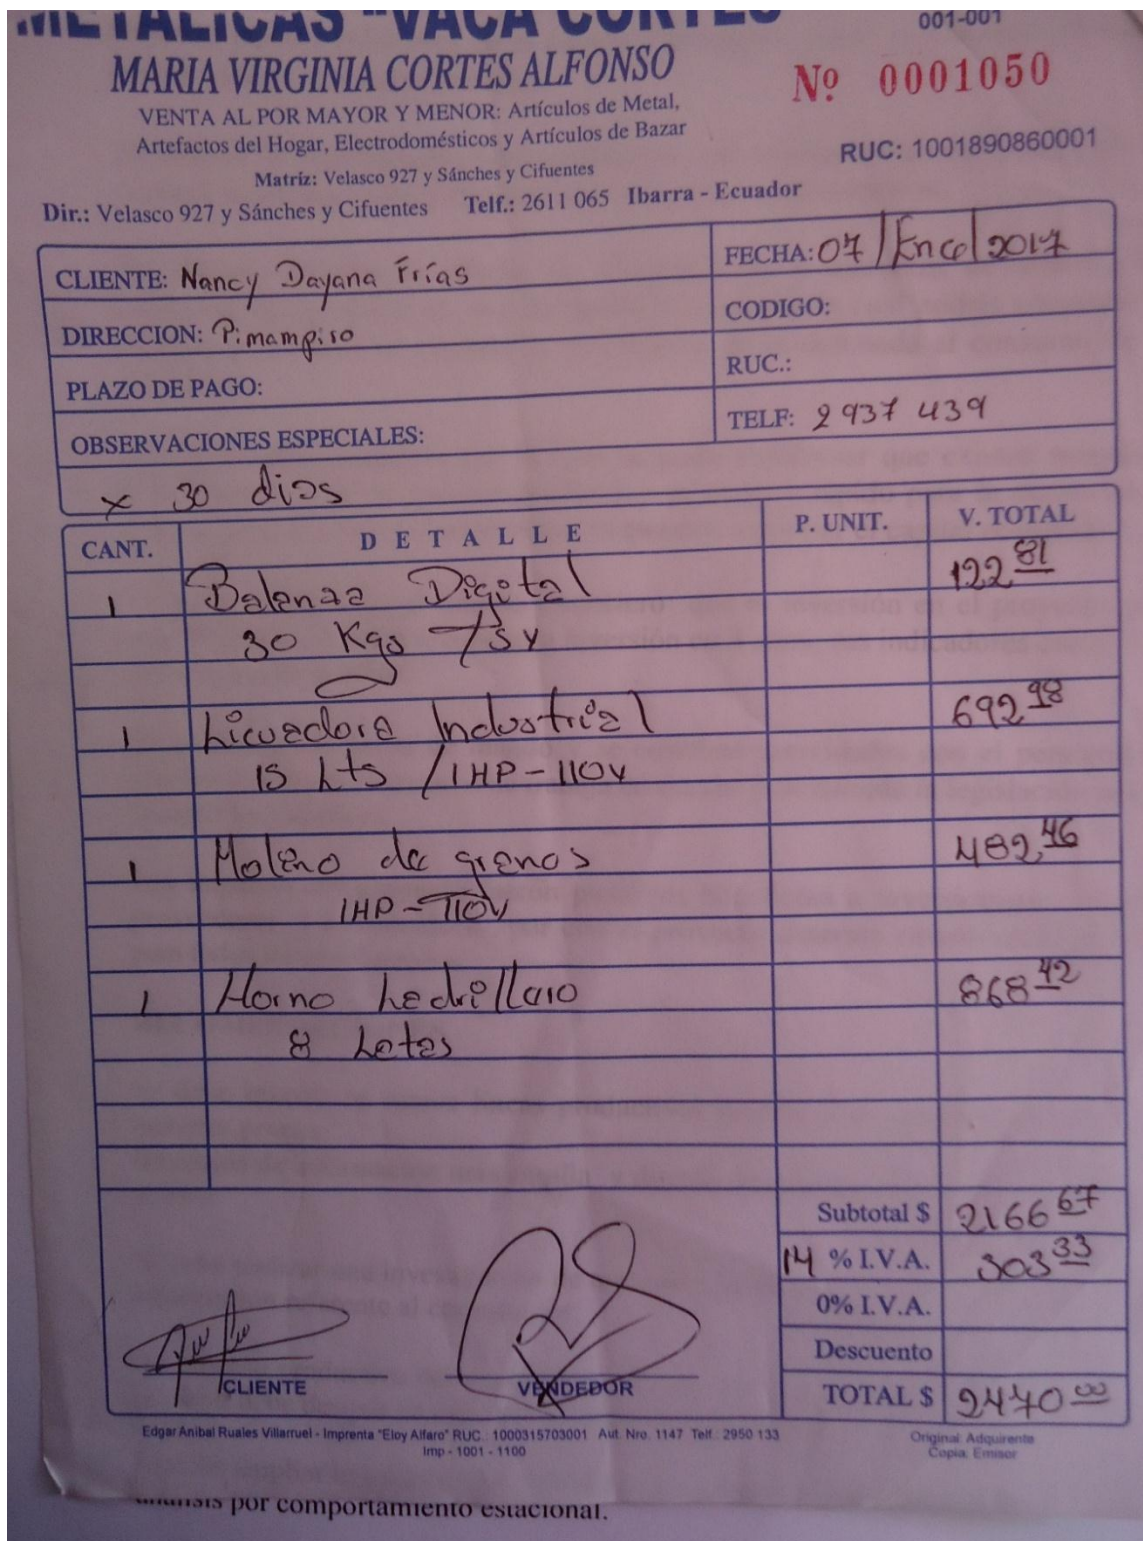 METALICAS "VACA CORTES"
001-001
MARIA VIRGINIA CORTES ALFONSO
Nº 0001050
VENTA AL POR MAYOR Y MENOR: Artículos de Metal,
Artefactos del Hogar, Electrodomésticos y Artículos de Bazar
RUC: 1001890860001
Matríz: Velasco 927 y Sánches y Cifuentes
Dir.: Velasco 927 y Sánches y Cifuentes Telf.: 2611 065 Ibarra - Ecuador
CLIENTE: Nancy Dayana Frías
FECHA: 07/Ene/2017
DIRECCION: Pimampiro
CODIGO:
PLAZO DE PAGO:
RUC.:
OBSERVACIONES ESPECIALES:
TELF: 2937 439
x 30 dias
CANT. DETALLE P. UNIT. V. TOTAL
1 Balanza Digital 122 81
30 Kgs
1 Licuadora Industrial 692 98
15 Lts /1HP-110V
1 Molino de granos 482,46
1HP-110V
1 Horno Ladrillaro 868 42
8 Latas
Subtotal $ 2166 67
14 % I.V.A. 303 33
0% I.V.A.
Descuento
TOTAL $ 2470 00
CLIENTE VENDEDOR
Edgar Anibal Ruales Villarruel - Imprenta "Eloy Alfaro" RUC.: 1000315703001 Aut. Nro. 1147 Telf.: 2950 133
Imp - 1001 - 1100
Original: Adquirente
Copia: Emisor
análisis por comportamiento estacional.